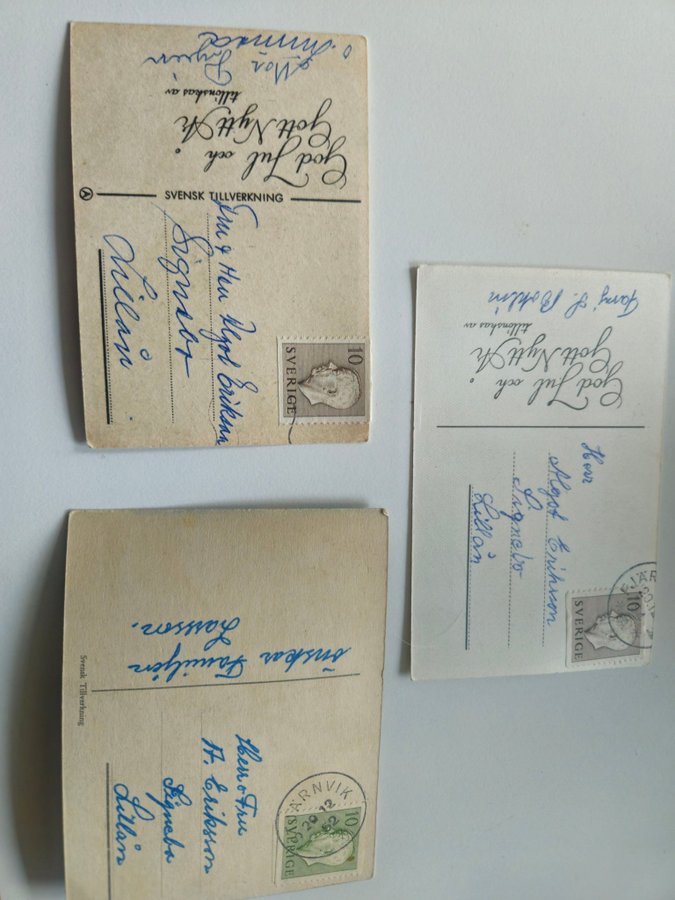 God Jul och
Gott Nytt År
tillönskas av
Mor
o
SVENSK TILLVERKNING
Fru & Herr Algot Eriksson
Signebo
Lillån
10
SVERIGE
God Jul och
Gott Nytt År
tillönskas av
Famj S. Bohlin
Herr
Algot Eriksson
Signebo
Lillån
10
SVERIGE
önskar Familjen
Larsson.
Svensk Tillverkning
Herr o Fru
A. Eriksson
Signebo
Lillån
ÄRNVIK
20 12
52
10
SVERIGE